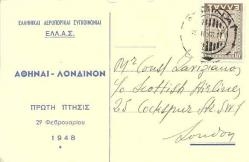 ΕΛΛΗΝΙΚΑΙ ΑΕΡΟΠΟΡΙΚΑΙ ΣΥΓΚΟΙΝΩΝΙΑΙ
ΕΛΛ.Α.Σ.
ΑΘΗΝΑΙ - ΛΟΝΔΙΝΟΝ
ΠΡΩΤΗ ΠΤΗΣΙΣ
29 Φεβρουαρίου
1948
Mr Const.
c/o Scottish Airlines
25 Cockspur St. SW1
London